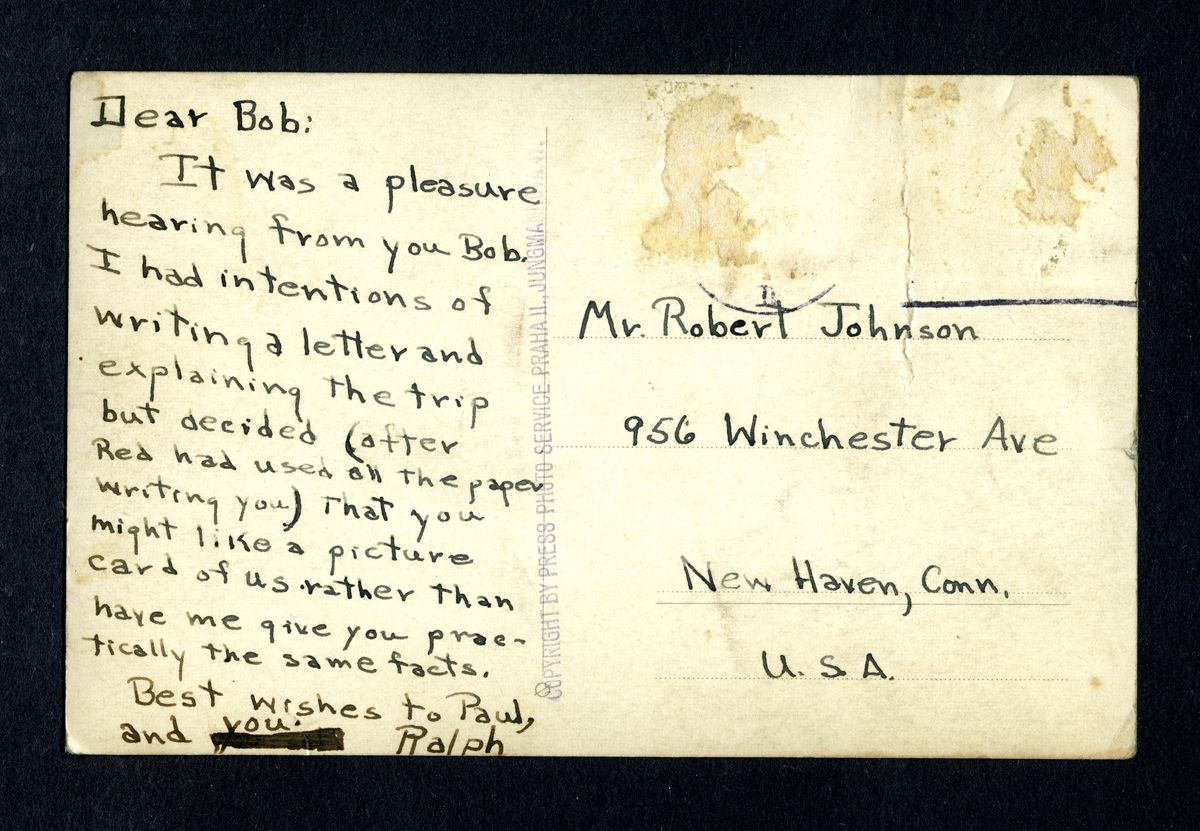 Dear Bob:
It was a pleasure
hearing from you Bob.
I had intentions of
writing a letter and
explaining the trip
but decided (after
Red had used all the paper
writing you) that you
might like a picture
card of us rather than
have me give you prac-
tically the same facts.
Best wishes to Paul,
and you.
Ralph
COPYRIGHT BY PRESS PHOTO SERVICE PRAHA II., JUNGMA
Mr. Robert Johnson
956 Winchester Ave
New Haven, Conn.
U. S A.